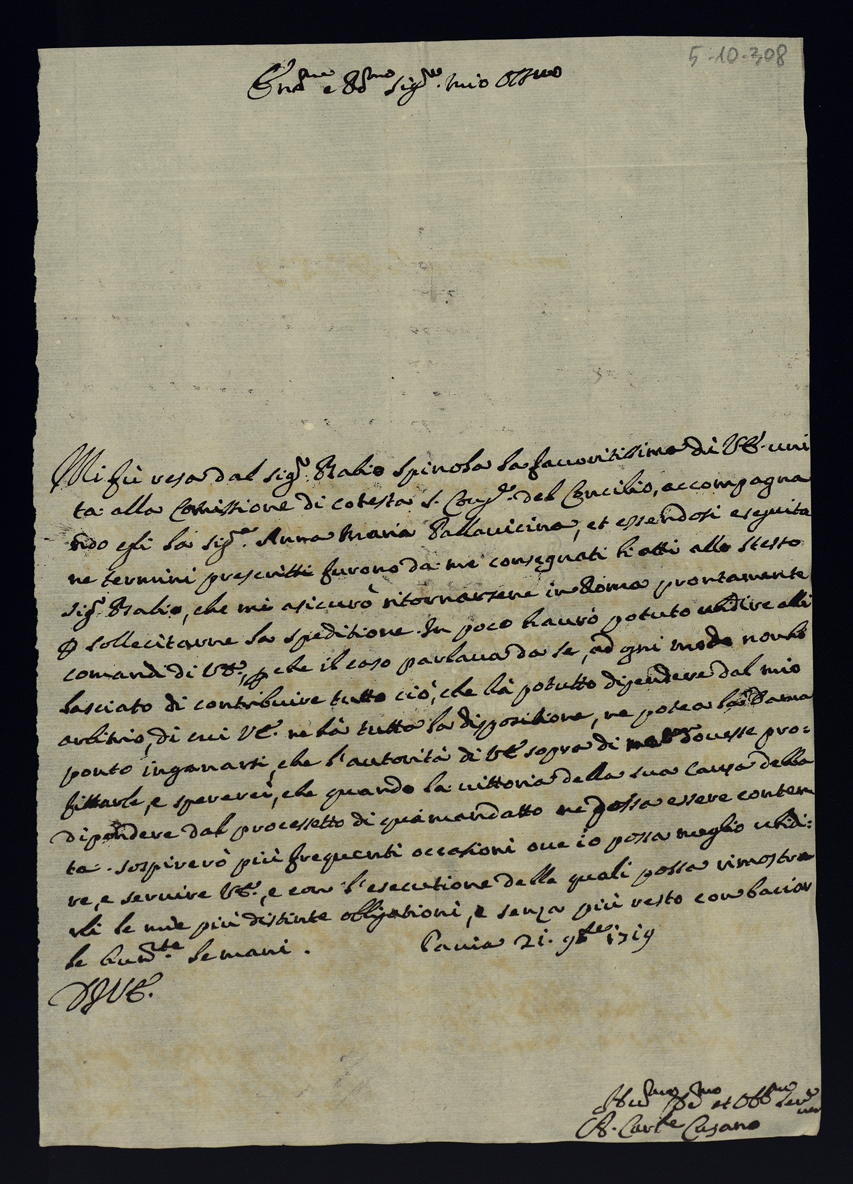 5-10-308
Em̃mo e Rd̃mo Sigre. mio Ossmo
Mi fù resa dal sigr. Stabio Spinola la fauoritissima di VE. uni
ta alla Comissione di cotesta S. Congne. del Concilio, accompagna
ndo egli la sigra. Anna Maria Pallauicina, et essendosi eseguita
ne termini prescritti furono da me consegnati li atti allo stesso
sigr. Stabio, che mi asicurò ritornarsene in Roma prontamente
p sollecitarne la speditione. In poco haurò potuto ubidire alli
comandi di VE., p che il caso parlaua da se, ad ogni modo non hò
lasciato di contribuire tutto ciò, che hà potutto dipendere dal mio
arbitrio, di cui VE. ne hà tutta la dispositione, ne potea la Dama
ponto inganarsi, che l'autorità di VE. sopra di me douesse pro=
fittarle, e spererei, che quando la uittoria della sua causa debba
dipendere dal processetto di quà mandatto ne possa essere conten
ta. sospirerò più frequenti occasioni oue io possa meglio ubidi=
re, e seruire VE., e con l'esecutione delle quali possa rimostra
rli le mie più distinte obligationi, e senza più resto con baciar
le humte. le mani. Pauia 21. 9bre 1719
D VE.
Humo Deumo et Obbmo Seru
Carlo Cusano